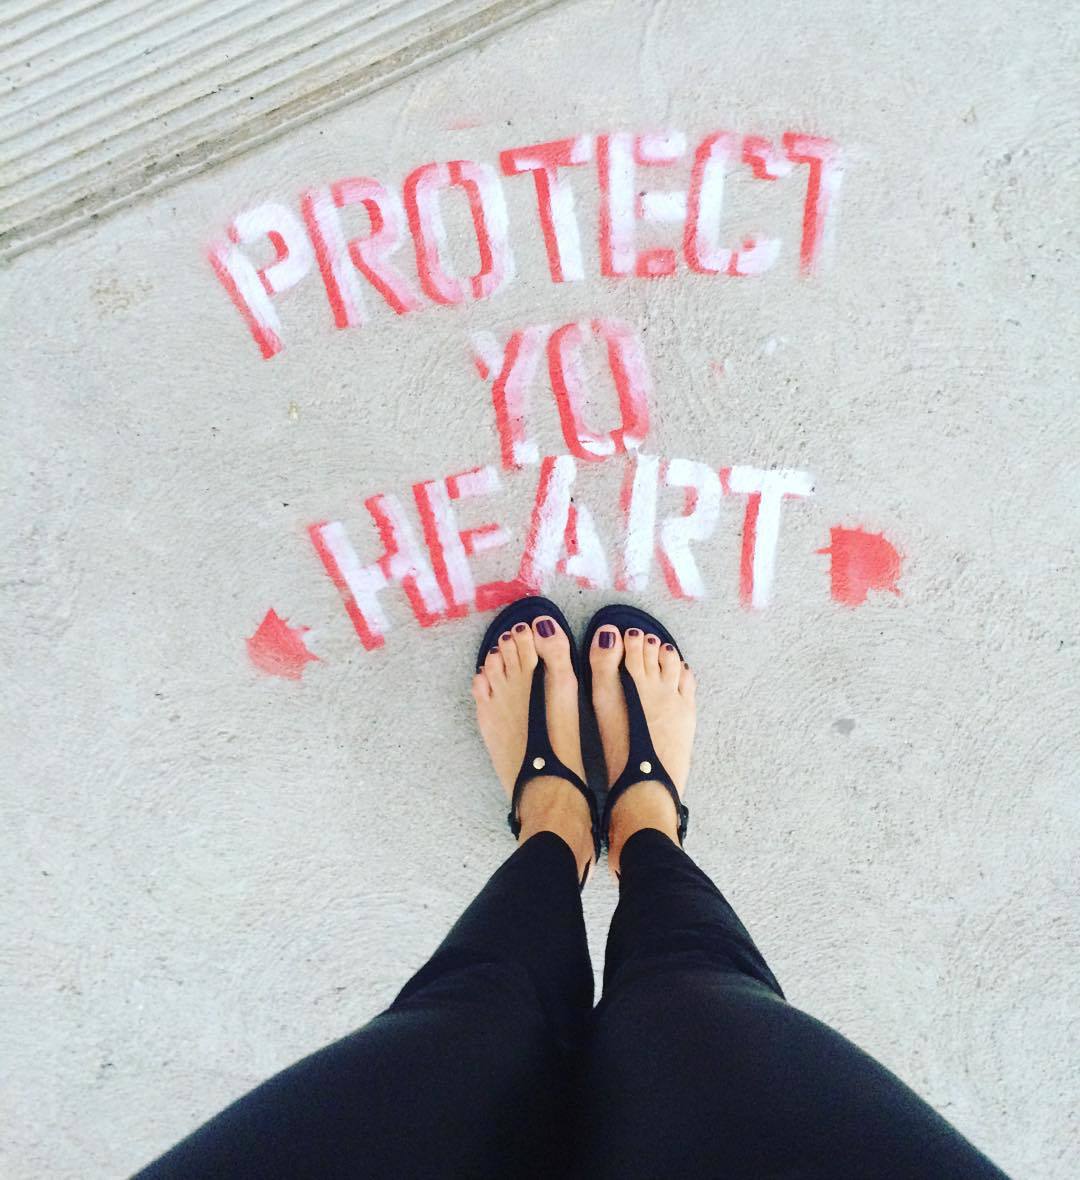 PROTECT
YO
HEART